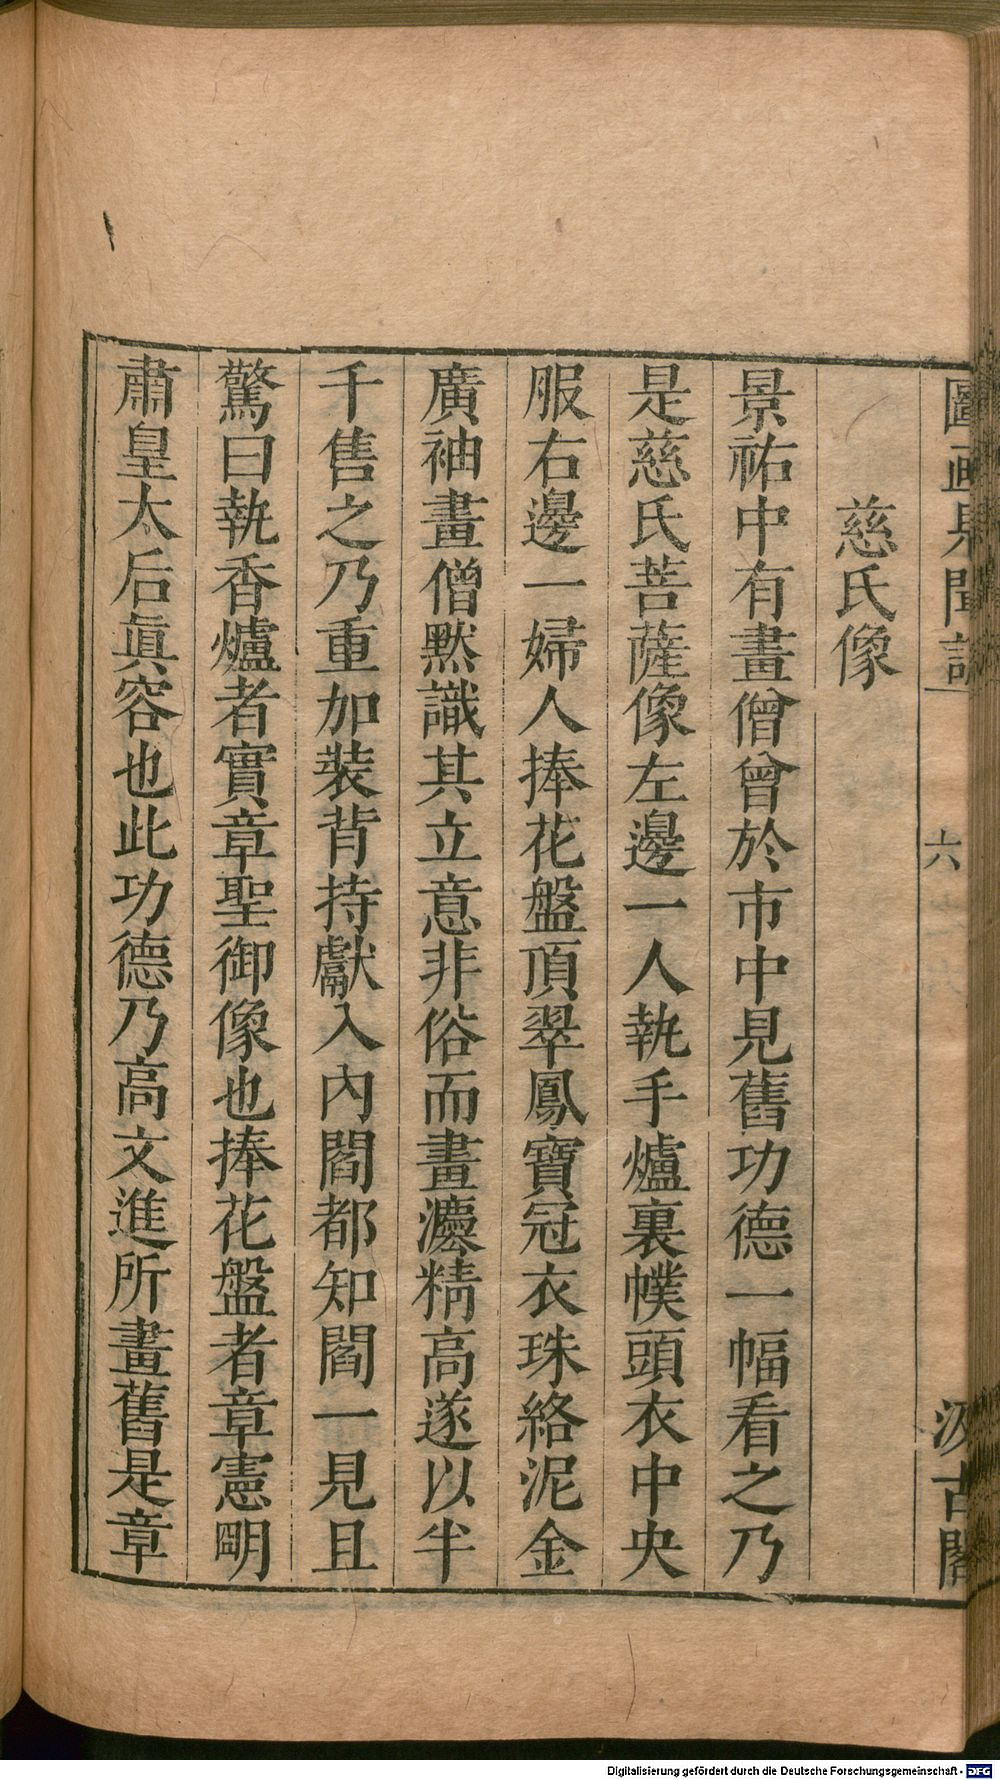 圖画見聞誌
六
汲古閣
慈氏像
景祐中有畫僧曾於市中見舊功德一幅看之乃
是慈氏菩薩像左邊一人執手爐裹幞頭衣中央
服右邊一婦人捧花盤頂翠鳳寶冠衣珠絡泥金
廣袖畫僧黙識其立意非俗而畫灋精高遂以半
千售之乃重加裝背持獻入內閣都知閻一見且
驚曰執香爐者實章聖御像也捧花盤者章憲明
肅皇太后眞容也此功德乃高文進所畫舊是章
Digitalisierung gefördert durch die Deutsche Forschungsgemeinschaft - DFG